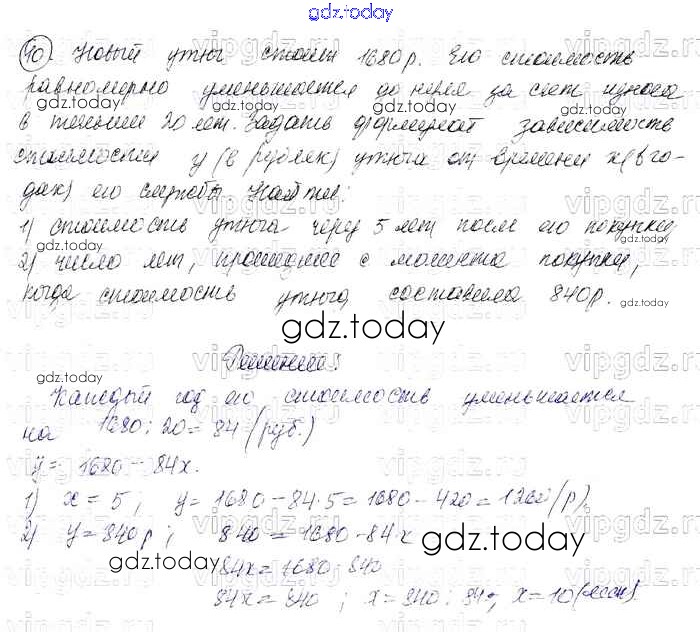 gdz.today
40. Новый утюг стоит 1680 р. Его стоимость
равномерно уменьшается до нуля за счет износа
в течении 20 лет. Задать формулой зависимость
стоимости y (в рублях) утюга от времени x (в го-
дах) его службы. Найти:
1) стоимость утюга через 5 лет после его покупки
2) число лет, прошедшее с момента покупки,
когда стоимость утюга составила 840 р.
gdz.today
Решение:
Каждый год его стоимость уменьшается
на 1680 : 20 = 84 (руб.)
y = 1680 - 84x.
1) x = 5 ; y = 1680 - 84 · 5 = 1680 - 420 = 1260 (р).
2) y = 840 р ; 840 = 1680 - 84 · x
gdz.today
84x = 1680 - 840
84x = 840 ; x = 840 : 84 , x = 10 (лет)